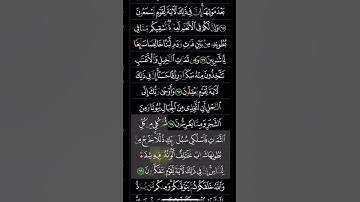 بَعْدَ مَوْتِهَا إِنَّ فِي ذَٰلِكَ لَآيَةً لِّقَوْمٍ يَسْمَعُونَ
٦٥ وَإِنَّ لَكُمْ فِي الْأَنْعَامِ لَعِبْرَةً نُّسْقِيكُم مِّمَّا فِي
بُطُونِهِ مِن بَيْنِ فَرْثٍ وَدَمٍ لَّبَنًا خَالِصًا سَائِغًا
لِّلشَّارِبِينَ ٦٦ وَمِن ثَمَرَاتِ النَّخِيلِ وَالْأَعْنَابِ
تَتَّخِذُونَ مِنْهُ سَكَرًا وَرِزْقًا حَسَنًا إِنَّ فِي ذَٰلِكَ
لَآيَةً لِّقَوْمٍ يَعْقِلُونَ ٦٧ وَأَوْحَىٰ رَبُّكَ إِلَى
النَّحْلِ أَنِ اتَّخِذِي مِنَ الْجِبَالِ بُيُوتًا وَمِنَ
الشَّجَرِ وَمِمَّا يَعْرِشُونَ ٦٨ ثُمَّ كُلِي مِن كُلِّ
الثَّمَرَاتِ فَاسْلُكِي سُبُلَ رَبِّكِ ذُلُلًا يَخْرُجُ مِن
بُطُونِهَا شَرَابٌ مُّخْتَلِفٌ أَلْوَانُهُ فِيهِ شِفَاءٌ
لِّلنَّاسِ إِنَّ فِي ذَٰلِكَ لَآيَةً لِّقَوْمٍ يَتَفَكَّرُونَ ٦٩
وَاللَّهُ خَلَقَكُمْ ثُمَّ يَتَوَفَّاكُمْ وَمِنكُم مَّن يُرَدُّ